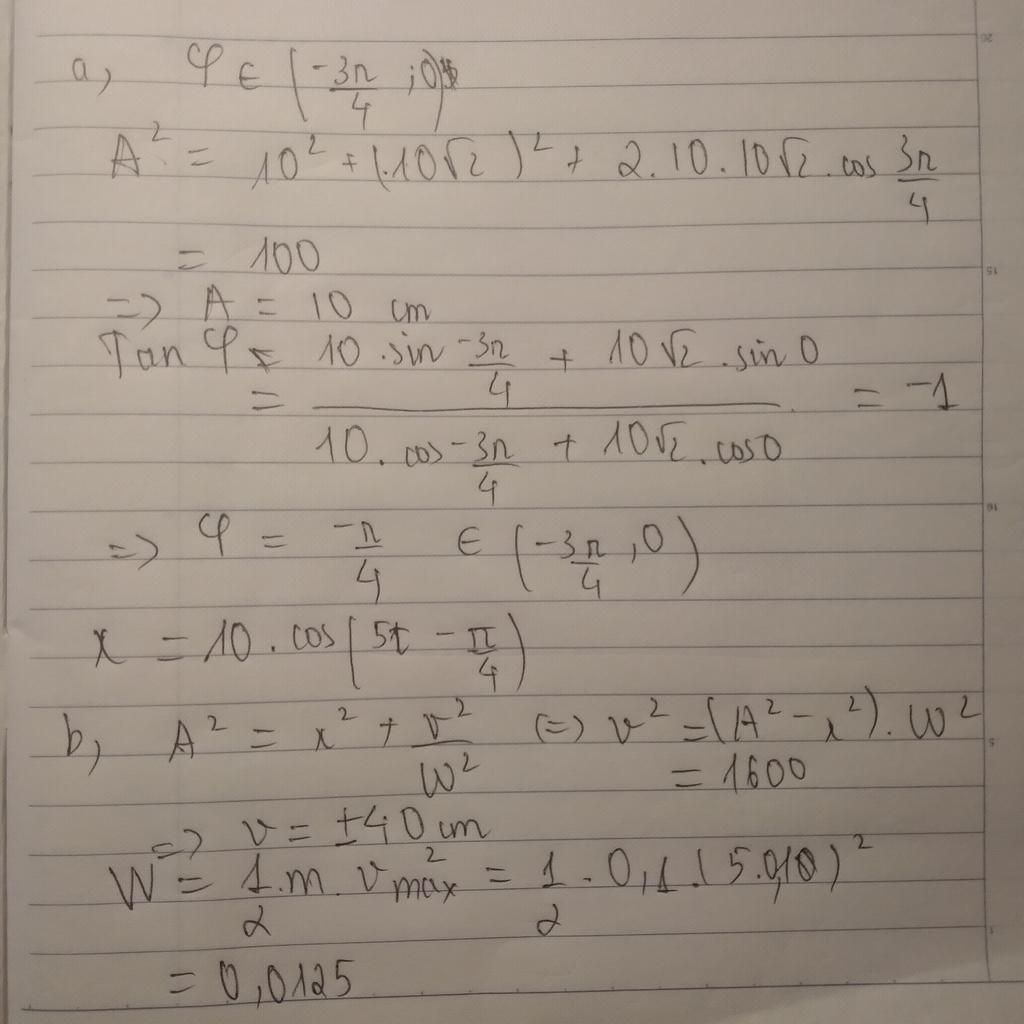 a, φ ∈ (-3π/4 ; 0)
A² = 10² + (10√2)² + 2.10.10√2 . cos 3π/4
= 100
=> A = 10 cm
Tan φ = (10 . sin -3π/4 + 10√2 . sin 0) / (10 . cos -3π/4 + 10√2 . cos 0) = -1
=> φ = -π/4 ∈ (-3π/4 , 0)
x = 10 . cos(5t - π/4)
b, A² = x² + v²/W² (=) v² = (A² - x²) . W²
= 1600
=> v = ±40 cm
W = 1/2 . m . v²max = 1/2 . 0,1 . (5.0,10)²
= 0,0125